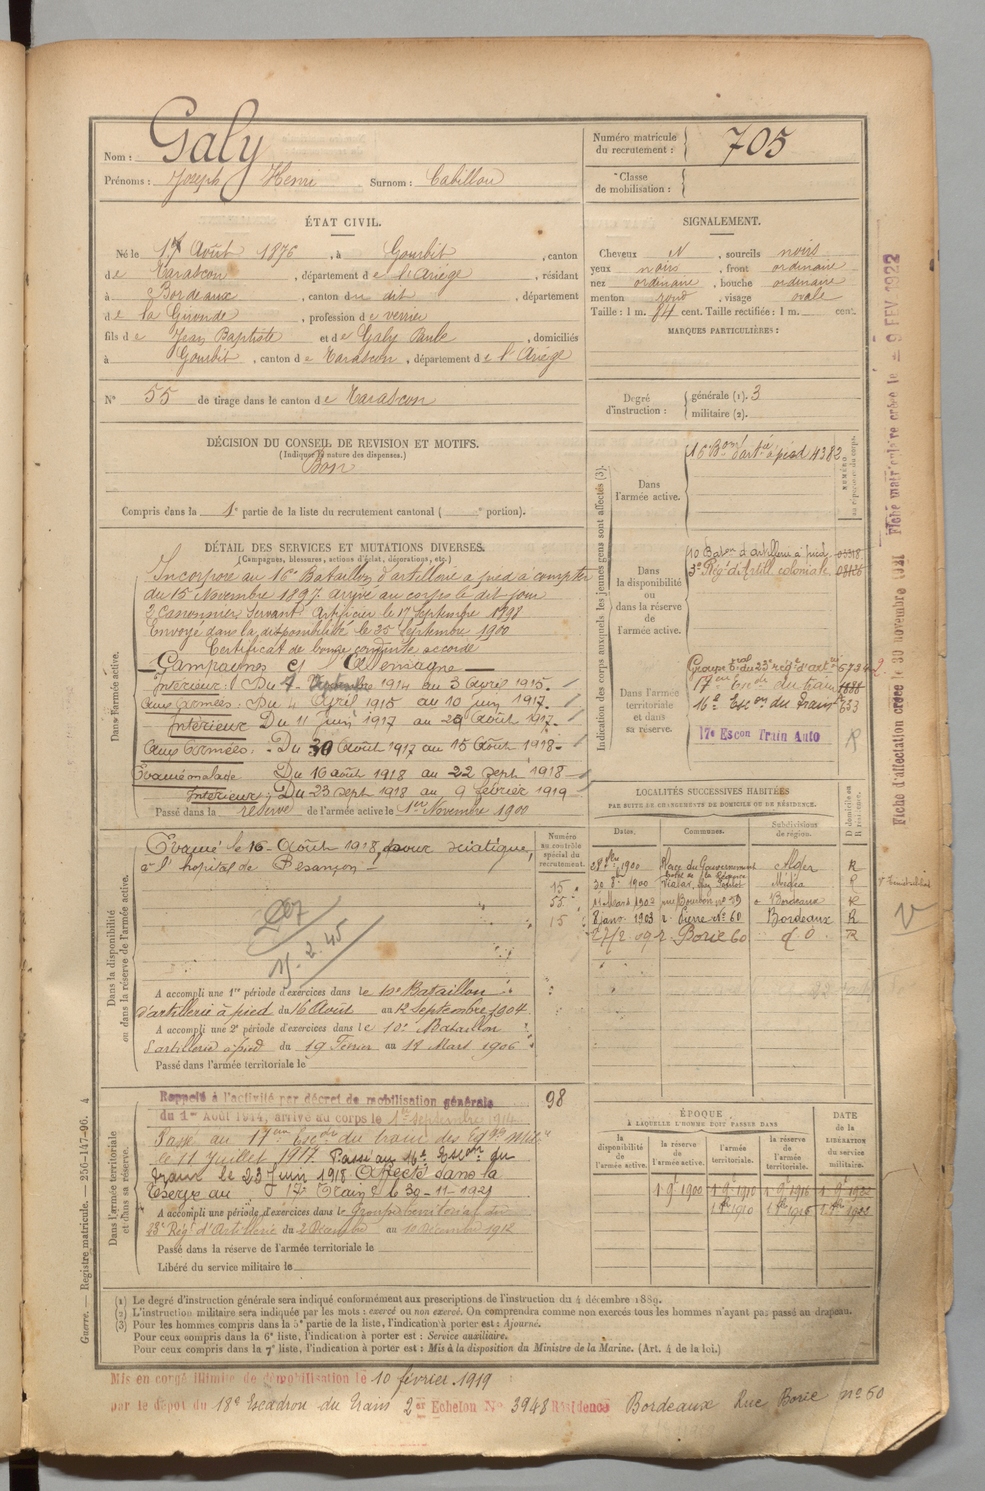 Nom : Galy
Prénoms : Joseph Henri Surnom : Cabillou
Numéro matricule du recrutement : 705
Classe de mobilisation :
ÉTAT CIVIL.
Né le 17 Août 1876, à Gourbit, canton
de Tarascon, département de l'Ariège, résidant
à Bordeaux, canton du dit, département
de la Gironde, profession de verrier
fils de Jean Baptiste et de Galy Paule, domiciliés
à Gourbit, canton de Tarascon, département de l'Ariège
N° 55 de tirage dans le canton de Tarascon
SIGNALEMENT.
Cheveux N, sourcils noirs
yeux noirs, front ordinaire
nez ordinaire, bouche ordinaire
menton rond, visage ovale
Taille : 1 m. 84 cent. Taille rectifiée : 1 m. cent.
MARQUES PARTICULIÈRES :
Degré d'instruction : générale (1). 3
militaire (2).
DÉCISION DU CONSEIL DE REVISION ET MOTIFS.
(Indiquer la nature des dispenses.)
Bon
Compris dans la 1e partie de la liste du recrutement cantonal ( e portion).
DÉTAIL DES SERVICES ET MUTATIONS DIVERSES.
(Campagnes, blessures, actions d'éclat, décorations, etc.)
Dans l'armée active.
Incorporé au 16e Bataillon d'artillerie à pied à compter
du 15 Novembre 1897. arrivé au corps le dit jour
2e Canonnier Servant Artificier le 17 Septembre 1898
Envoyé dans la disponibilité le 25 Septembre 1900
Certificat de bonne conduite accordé
Campagnes Ct l'Allemagne
Intérieur : Du 1 Septembre 1914 au 3 Avril 1915.
Aux Armées : Du 4 Avril 1915 au 10 Juin 1917.
Intérieur Du 11 Juin 1917 au 29 Août 1917.
Aux Armées : Du 30 Août 1917 au 15 Août 1918.
Evacué malade Du 16 août 1918 au 22 sept 1918
Intérieur : Du 23 sept 1918 au 9 février 1919
Passé dans la réserve de l'armée active le 1er Novembre 1900
Indication des corps auxquels les jeunes gens sont affectés (3).
NUMÉRO
Dans l'armée active.
16e Bon d'artie à pied 4382
Dans la disponibilité ou dans la réserve de l'armée active.
10 Baton d'Artillerie à pied
3e Rég d'Artill coloniale
Dans l'armée territoriale et dans sa réserve.
Groupe du 23e rég d'art 5734
17e Esc du train
16e Escon du Train 633
17e Escon Train Auto
LOCALITÉS SUCCESSIVES HABITÉES
PAR SUITE DE CHANGEMENTS DE DOMICILE OU DE RÉSIDENCE.
Dates. Communes. Subdivisions de région. D domicile ou R résidence.
1900 Place du Gouvernement Alger R
30 1900 Médéa R
11 Mars 1902 rue Bourbon no 19 Bordeaux R
8 Janv 1903 r. Borie No 60 Bordeaux R
r. Borie 60 do R
Dans la disponibilité ou dans la réserve de l'armée active.
Numéro au contrôle spécial du recrutement.
Evacué le 16 Août 1918, pour sciatique,
à l'hôpital de Besançon
207
15. 2. 45
15
55
15
A accompli une 1re période d'exercices dans le 10e Bataillon
d'artillerie à pied du 16 Août au 12 Septembre 1904.
A accompli une 2e période d'exercices dans le 10e Bataillon
d'artillerie à pied du 19 Février au 18 Mars 1906
Passé dans l'armée territoriale le
Dans l'armée territoriale et dans sa réserve.
Rappelé à l'activité par décret de mobilisation générale
du 1er Août 1914, arrivé au corps le 1er septembre 1914
98
Passé au 17e Escon du train des Eqges Milres
le 11 Juillet 1917. Passé au 16e Escon du
Train le 23 Juin 1918 Affecté dans la
17e Train le 30-11-1921
A accompli une période d'exercices dans le Groupe territorial du
23e Régt d'Artillerie du 2 Décembre au 10 Décembre 1912
Passé dans la réserve de l'armée territoriale le
Libéré du service militaire le
ÉPOQUE
À LAQUELLE L'HOMME DOIT PASSER DANS
la disponibilité de l'armée active. la réserve de l'armée active. l'armée territoriale. la réserve de l'armée territoriale.
DATE de la LIBÉRATION du service militaire.
1 9 1900 1 9 1910 1 9 1916 1 9 1922
1910 1916 1922
(1) Le degré d'instruction générale sera indiqué conformément aux prescriptions de l'instruction du 4 décembre 1889.
(2) L'instruction militaire sera indiquée par les mots : exercé ou non exercé. On comprendra comme non exercés tous les hommes n'ayant pas passé au drapeau.
(3) Pour les hommes compris dans la 5e partie de la liste, l'indication à porter est : Ajourné.
Pour ceux compris dans la 6e liste, l'indication à porter est : Service auxiliaire.
Pour ceux compris dans la 7e liste, l'indication à porter est : Mis à la disposition du Ministre de la Marine. (Art. 4 de la loi.)
Mis en congé illimité de démobilisation le 10 février 1919
par le dépôt du 18e Escadron du Train 2er Echelon No 3948 Résidence Bordeaux Rue Borie no 60
Guerre. — Registre matricule. — 256-147-96. 4
Fiche d'affectation créée le 30 novembre 1921 Fiche matriculaire créée le 9 FEV 1922